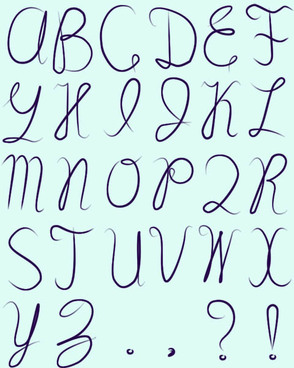 A B C D E F
G H I J K L
M N O P Q R
S T U V W X
Y Z . , ? !